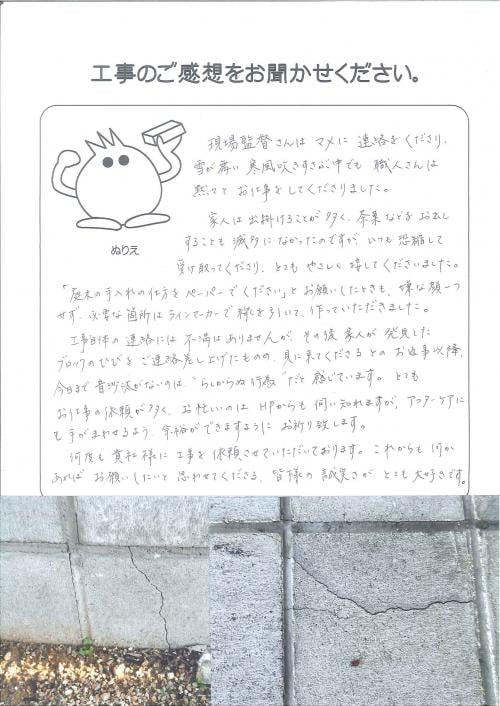 工事のご感想をお聞かせください。
現場監督さんは マメに 連絡をくださり、
雪が舞い 寒風吹きすさぶ中でも 職人さんは
黙々と お仕事をしてくださりました。
家人は出掛けることが多く、茶菓などをお出し
することも滅多になかったのですが、いつも恐縮して
受け取ってくださり、とても やさしく 接してくださいました。
ぬりえ
「庭木の手入れの仕方をペーパーでください」とお願いしたときも、嫌な顔一つ
せず、必要な箇所はラインマーカーで線を引いて、作っていただきました。
工事自体の連絡には 不満はありませんが、その後 家人が 発見した
ブロックのひびを ご連絡差し上げたものの、見に来てくださる とのお返事以降、
今日まで音沙汰がないのは、"らしからぬ行為"だと感じています。とても
お仕事の依頼が多く、お忙しいのは HPからも伺い知れますが、アフターケアに
も手がまわせるよう、余裕ができますように お祈り致します。
何度も貴社様に工事を依頼させていただいております。これからも何か
あれば お願いしたいと 思わせてくださる、皆様の 誠実さが、とても大好きです。